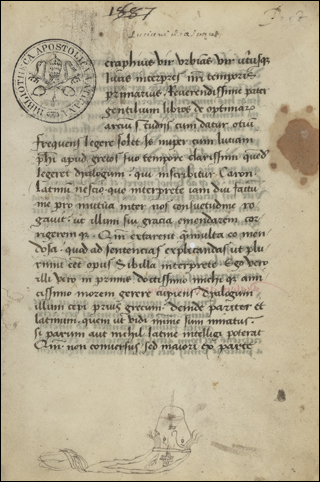 1887
BIBLIOTHECA APOSTOLICA VATICANA
craphius vir urbius vir utriusq
litīe interpres nr̄i temporis
primarius. Reverendissime pater
gentilium libros de optima
cum datur otiū
frequens legere solet. Is nuper cum lucianū
phī apud grecos suo tempore clarissimi quedā
legeret dialogum. qui inscribitur Caron
latinū nescio quo interprete iam diu factū
me pro mutua inter nos consuetudine ro
gavit ut illum sua gracia emendarem cor
rigeremq. Qm extarent quimulta co men
dosa. quod ad sentencias explicandas ut plu
rimū eēt opus Sibilla interprete. Ego vero
illi vero in primis doctissimo michi qz ami
cissimo morem gerere cupiens. dyalogum
illum cepi prius grecum. deinde pariter et
latinum. quem ut vidi mimi sum
si parum aut michil latine intelligi poterat
Qm non conversus sed maiori ex parte